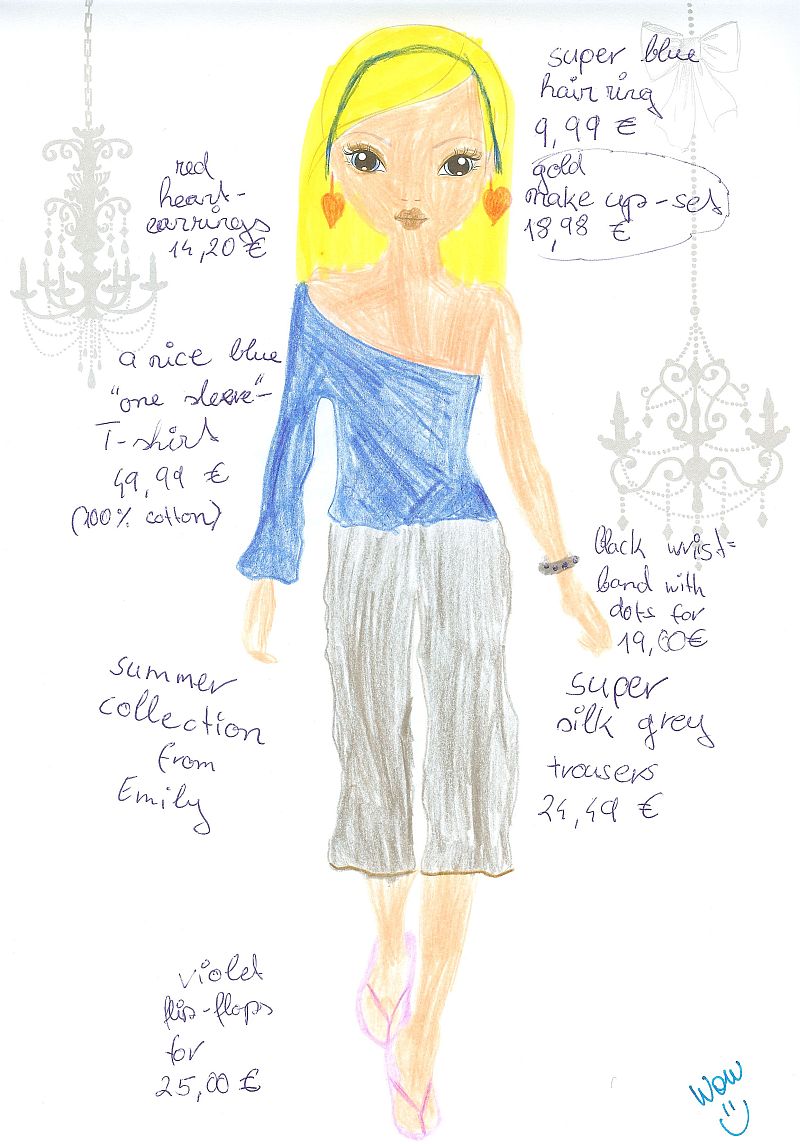 super blue
hair ring
9,99 €
gold
make up-set
18,98 €
red
heart-
earrings
14,20 €
a nice blue
"one sleeve"-
T-shirt
49,99 €
(100% cotton)
black wrist=
band with
dots for
19,00€
summer
collection
from
Emily
super
silk grey
trousers
24,49 €
violet
flip-flops
for
25,00 €
Wow